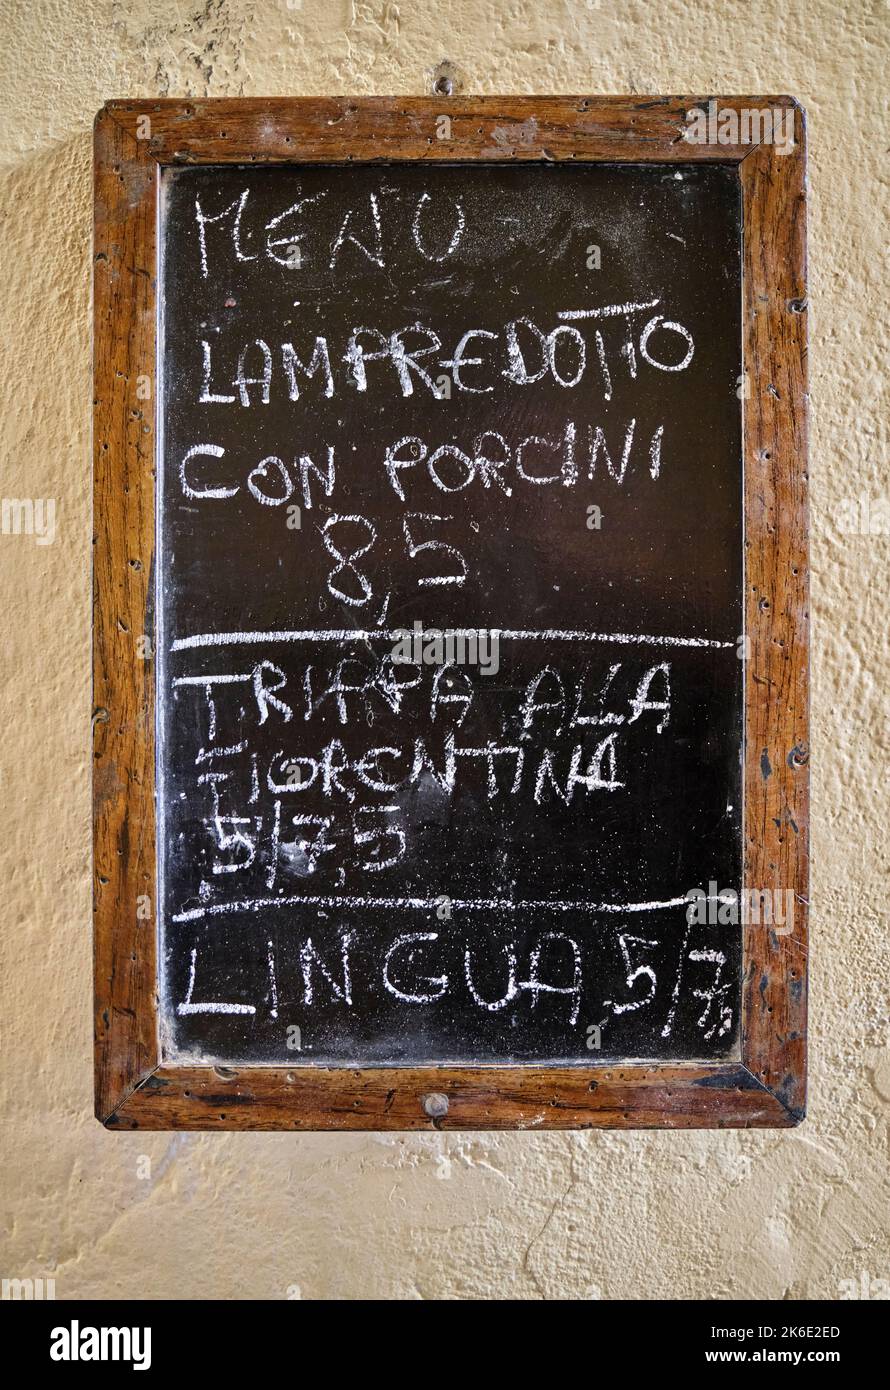 MENU
LAMPREDOTTO
CON PORCINI
8,5
TRIPPA ALLA
FIORENTINA
5/7,5
LINGUA 5/7,5
alamy
Image ID: 2K6E2ED
www.alamy.com